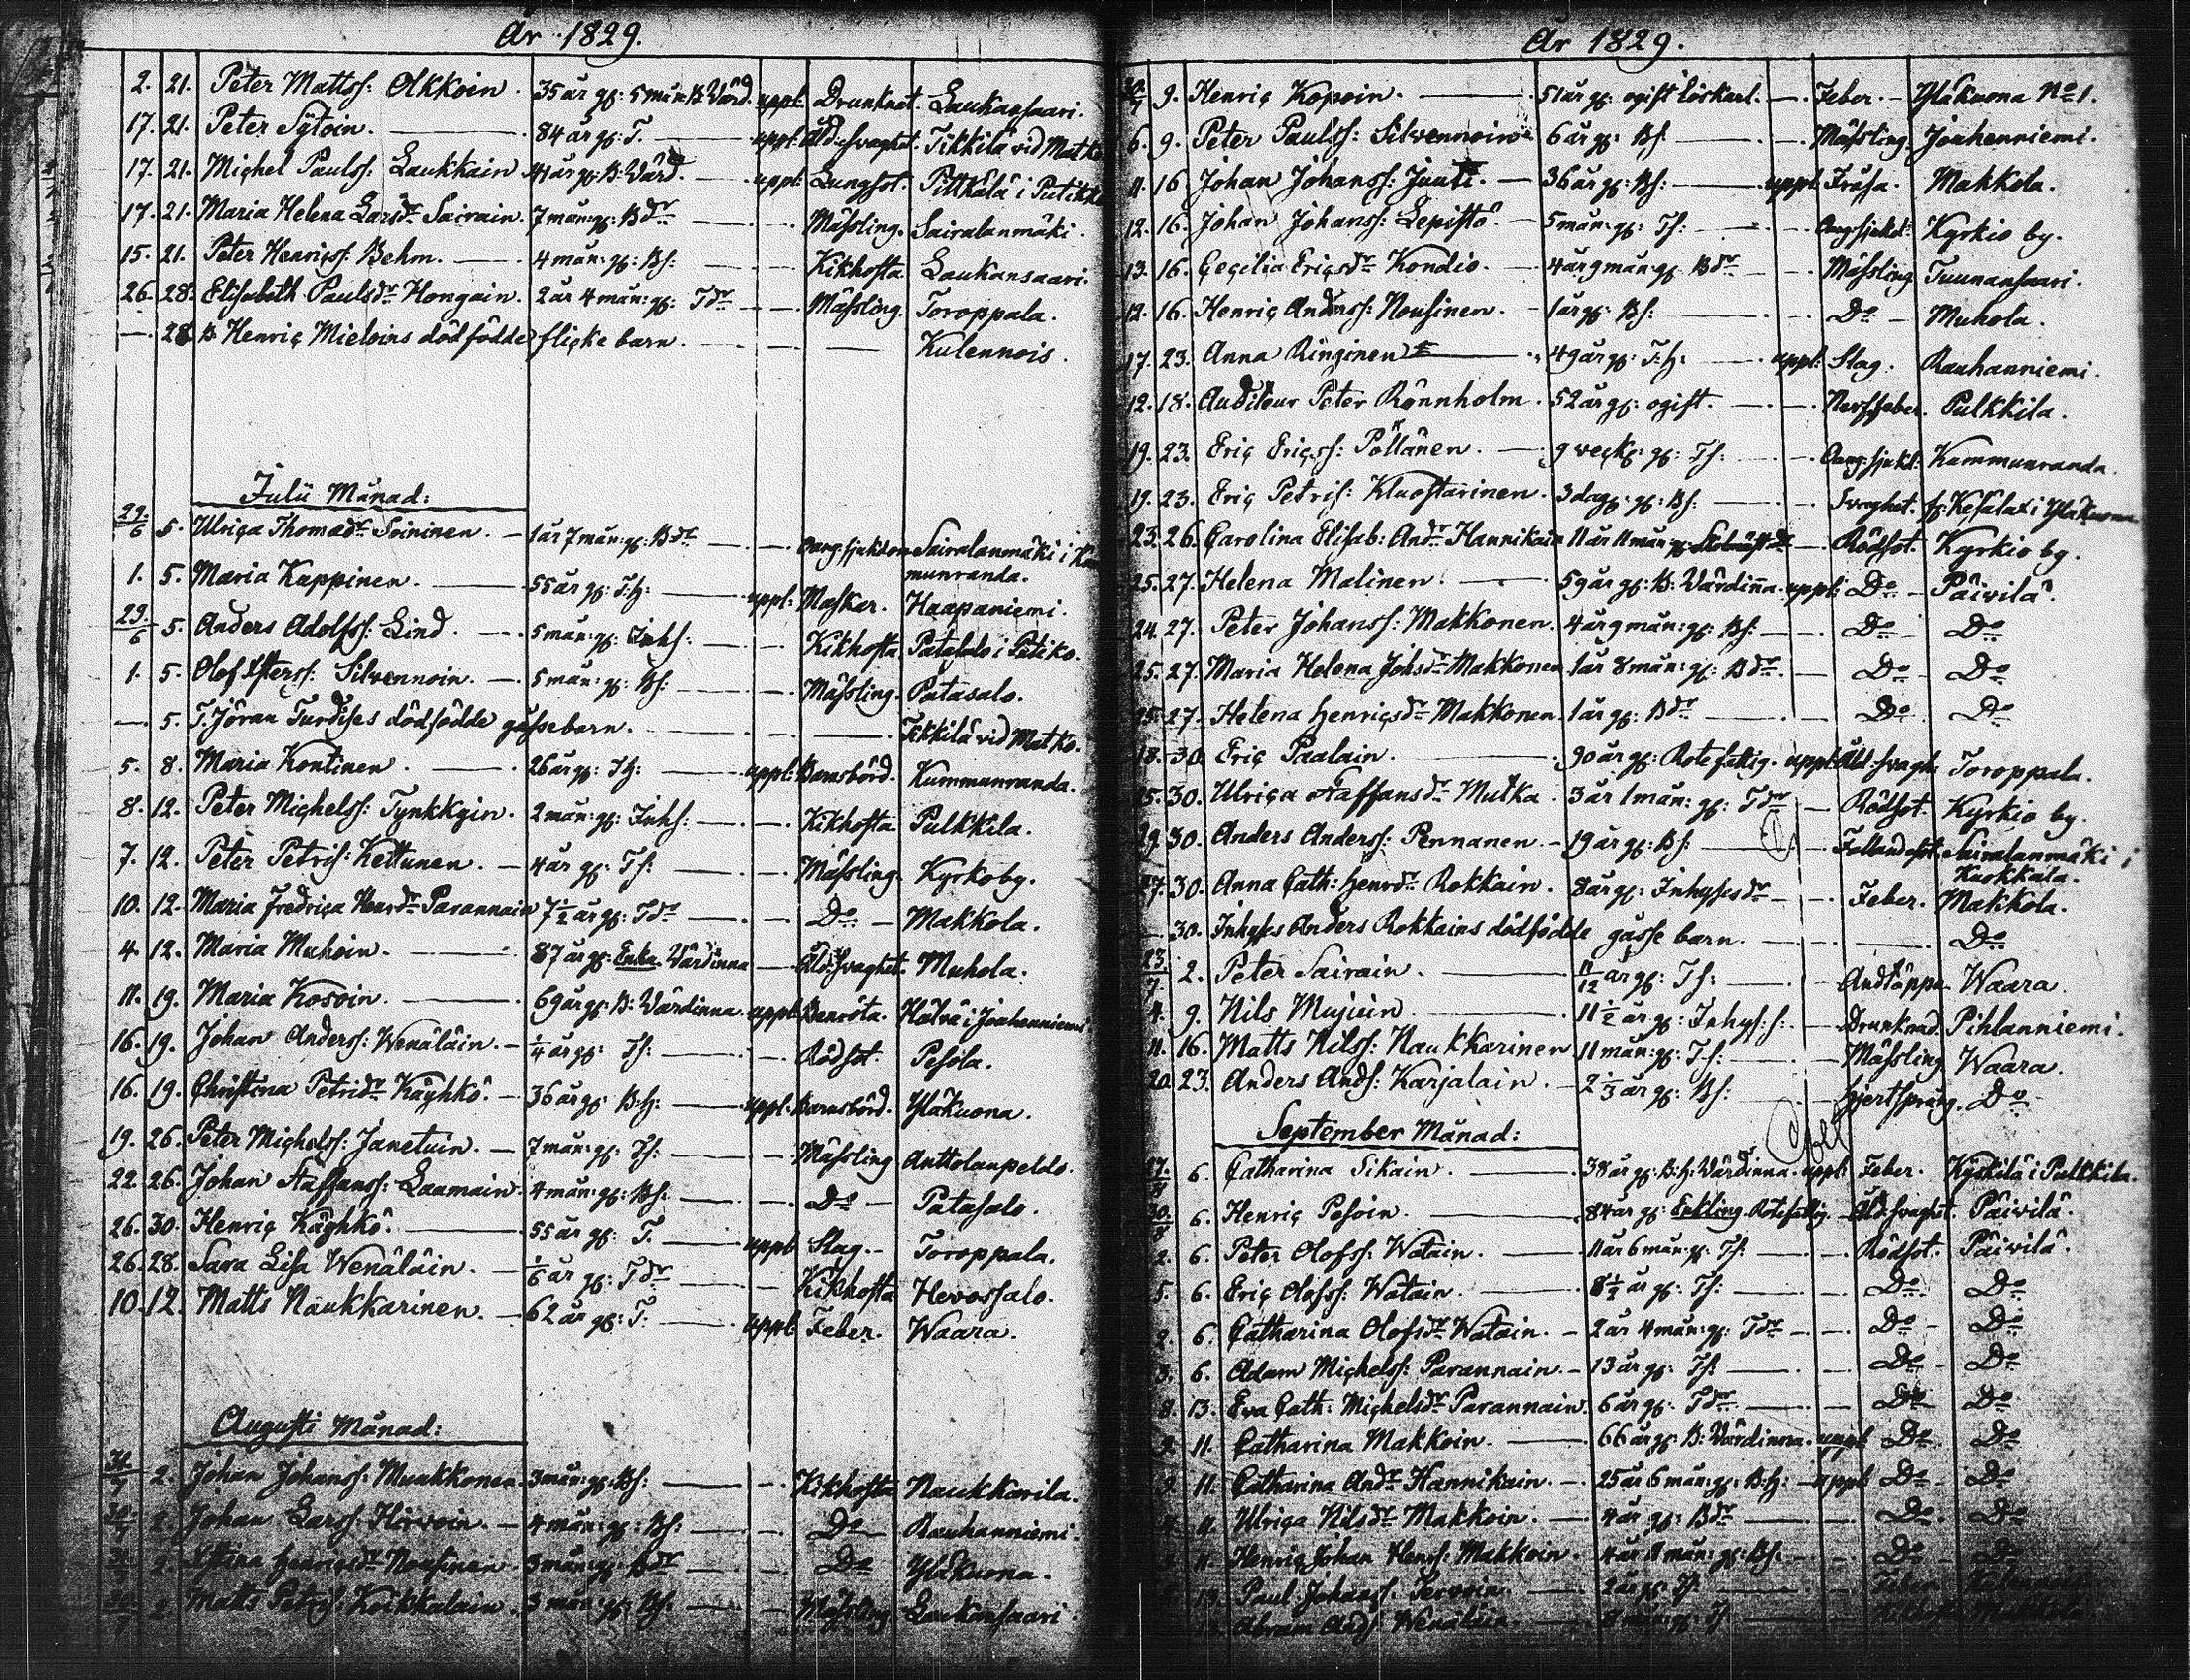 År 1829.
2. 21. Peter Mattss: Olkkoin. 35 år gl: 5 mån: B: Värd. uppl. Drunknat. Laukansaari.
17. 21. Peter Sÿtoin. 84 år gl: T. uppl: Åld:svaghet. Tikkilä vid Matko
17. 21. Michel Paulss: Laukkain 41 år gl: B: Värd. uppl: Lungsot. Pitkälä i Putikko
17. 21. Maria Helena Larsdr Sairain. 7 mån: gl: Bdr Mässling. Sairalanmäki.
15. 21. Peter Henricss: Behm. 4 mån: gl: Bs: Kikhosta. Laukansaari.
26. 28. Elisabeth Paulsdr Hongain. 2 år 4 mån: gl: Tdr Mässling. Toroppala.
— 28. B. Henric Mieloins dödfödde flicke barn. Kulennois.
Julii Månad:
29/6 5. Ulrica Thomædr Soininen. 1 år 7 mån: gl: Bdr Sairalanmäki i Kum
munranda.
1. 5. Maria Kappinen. 55 år gl: T:h: uppl: Maskar. Haapaniemi.
29/6 5. Anders Adolfss: Lind. 5 mån: gl: Inhs: Kikhosta. Patasalo i Putiko.
1. 5. Olof Silvennoin. 5 mån: gl: Bs: Mässling. Patasalo.
— 5. T. Jöran Turdises dödfödde gossebarn. Tikkilä vid Matko.
5. 8. Maria Kontinen. 26 år gl: T:h: uppl: Barnsbörd. Kummunranda.
8. 12. Peter Michelss: Tynkkyin. 2 mån: gl: Inhs: Kikhosta. Pulkkila.
7. 12. Peter Petris: Kettunen. 4 år gl: Ts: Mässling. Kyrkoby.
10. 12. Maria Fredrica Henrdr Parannain 7½ år gl: Tdr Do Makkola.
4. 12. Maria Muhoin. 87 år gl: Enka Värdinna Åld:svaghet. Muhola.
11. 19. Maria Kosoin. 69 år gl: B: Värdinna. uppl: Benröta. Hälvä i Joahenniemi
16. 19. Johan Anderss: Wenäläin. ¼ år gl: Ts: Rödsot. Pesola.
16. 19. Christina Petridr Käyhkö. 36 år gl: B:h: uppl: Barnsbörd. Yläkuona.
19. 26. Peter Michelss: Janetuin. 7 mån: gl: Ts: Mässling Anttolanpeldo.
22. 26. Johan Staffanss: Laamain. 4 mån: gl: Bs: Do Patasalo.
26. 30. Henric Käyhkö. 55 år gl: T. uppl Slag. Toroppala.
26. 28. Sara Lisa Wenäläin. 1/6 år gl: Tdr Kikhosta Hevossalo.
10. 12. Matts Naukkarinen. 62 år gl: T. uppl Feber. Waara.
Augusti Månad:
31/7 2. Johan Johanss: Muukkonen. 3 mån: gl: Bs: Kikhosta Naukkarila.
30/7 2. Johan Larss: Hirvoin. 4 mån: gl: Bs: Do Rauhanniemi.
31/7 2. Stina Henricsdr Nousinen. 3 mån: gl: Bdr Do Yläkuona.
30/7 2. Matts Petris: Koikkalain. 3 mån: gl: Bs: Mässling Laukansaari
År 1829.
30/7 9. Henric Kopoin. 51 år gl: ogift löskarl. Feber. Yläkuona No 1.
6. 9. Peter Paulss: Silvennoin 6 år gl: Bs: Mässling. Joahenniemi.
11. 16 Johan Johanss: Juuti. 36 år gl: Bs: uppl. Fråssa. Makkola.
12. 16. Johan Johanss: Lepistö 5 mån: gl: Ts: Kyrkio by.
13. 16. Cecilia Ericsdr Kondio. 4 år 9 mån: gl: Bdr Mässling Tuunansaari.
12. 16. Henric Anderss: Nousinen. 1 år gl: Bs: Do Muhola.
17. 23. Anna Ringinen 49 år gl: T:h: uppl: Slag. Rauhanniemi.
12. 18. Auditeur Peter Rönnholm. 52 år gl: ogift. Nervfeber. Pulkkila.
19. 23. Eric Ericss: Pöllänen. 9 veck: gl: Ts: Kummunranda.
19. 23. Eric Petris: Kluostarinen. 3 dag: gl: Bs: Svaghet. fr: Kesälax i Yläkuona
23. 26. Carolina Elisab: Andr Hannikain 11 år 11 mån: gl: Rödsot. Kyrkio by.
25. 27. Helena Malinen. 59 år gl: B: Värdinna. uppl: Do Päivilä.
24. 27. Peter Johanss: Makkonen. 4 år 9 mån: gl: Bs: Do Do
25. 27. Maria Helena Johsdr Makkonen 1 år 8 mån: gl: Bdr. Do Do
25. 27. Helena Henricsdr Makkonen. 1 år gl: Bdr Do Do
18. 30. Eric Paalain. 90 år gl: Rotefattig. uppl: Åld:svagh. Toroppala.
25. 30. Ulrica Staffansdr Mutka. 3 år 1 mån: gl: Tdr Rödsot. Kyrkio by.
29. 30. Anders Anderss: Pennanen. 19 år gl: Bs: Fallandesot. Sairalanmäki i
Kuokkala.
27. 30. Anna Cath: Henrdr Rokkain. 8 år gl: Inhysesdr Feber. Makkola.
— 30. Inhyses Anders Rokkains dödfödde gosse barn. Do
23/7 2. Peter Sairain. 11/12 år gl: Ts: Andtäppa. Waara.
4. 9. Nils Mujuin. 11½ år gl: Inhys:s: Drunknad. Pihlanniemi.
11. 16. Matts Nilss: Naukkarinen 11 mån: gl: Ts: Mässling Waara.
20. 23. Anders Ands: Karjalain. 2⅓ år gl: Bs: Hjertsprång. Do
September Månad:
27/8 6. Catharina Sikain. 38 år gl: B:h: Värdinna. uppl: Feber. Kyrkilä i Pulkkila.
30/8 6. Henric Pesoin. 84 år gl: Enkling. Rotefattig. Åld:svaghet. Päivilä.
2. 6. Peter Olofss: Watain. 11 år 6 mån: gl: Ts: Rödsot. Päivilä.
5. 6. Eric Olofss: Watain. 8½ år gl: Ts: Do Do
2. 6. Catharina Olofsdr Watain. 2 år 4 mån: gl: Tdr Do Do
3. 6. Adam Michelss: Parannain. 13 år gl: Ts: Do Do
8. 13. Eva Cath: Michelsdr Parannain. 6 år gl: Tdr Do Do
9. 11. Catharina Makkoin. 66 år gl: B: Värdinna. uppl Do Do
9. 11. Catharina Andr Hannikain. 25 år 6 mån: gl: B:h: uppl Do Do
11. Ulrica Nilsdr Makkoin. 4 år gl: Bdr Do Do
11. Henric Johan Henrs: Makkoin. 4 år 11 mån: gl: Bs: Do Do
13. Paul Johanss: 2 år gl: Ts: Feber
Abram Ands: Wenäläin.